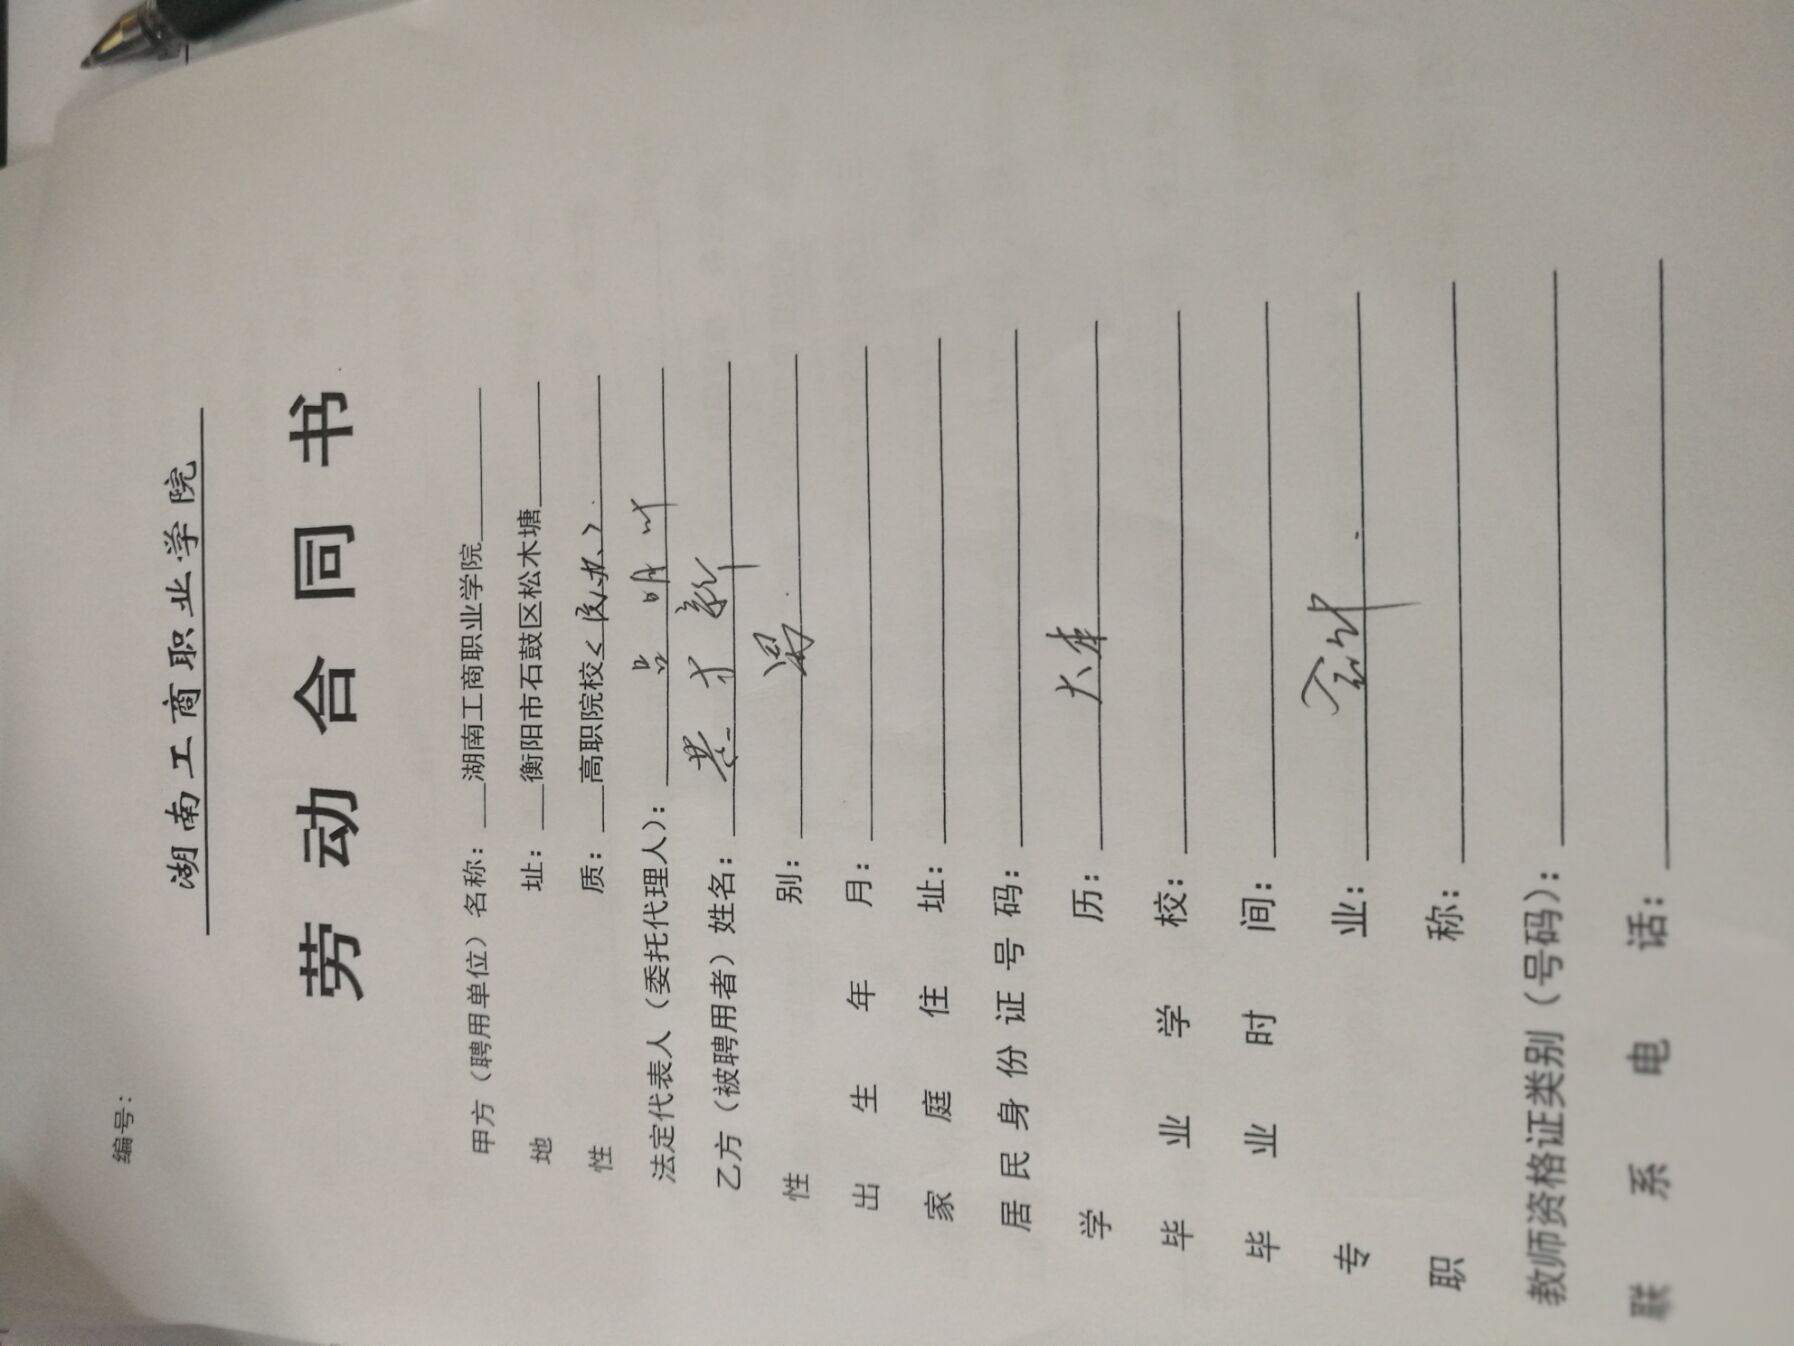 编号：
湖南工商职业学院
劳动合同书
甲方（聘用单位）名称：湖南工商职业学院
地址：衡阳市石鼓区松木塘
性质：高职院校<民办>
法定代表人（委托代理人）：吕明
乙方（被聘用者）姓名：黄才新
性别：男
出生年月：
家庭住址：
居民身份证号码：
学历：大本
毕业学校：
毕业时间：
专业：会计
职称：
教师资格证类别（号码）：
联系电话：